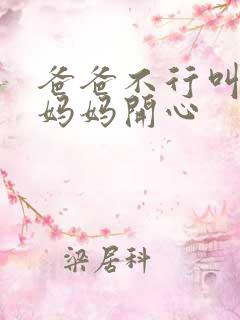 爸爸不行叫
妈妈開心
梁居科